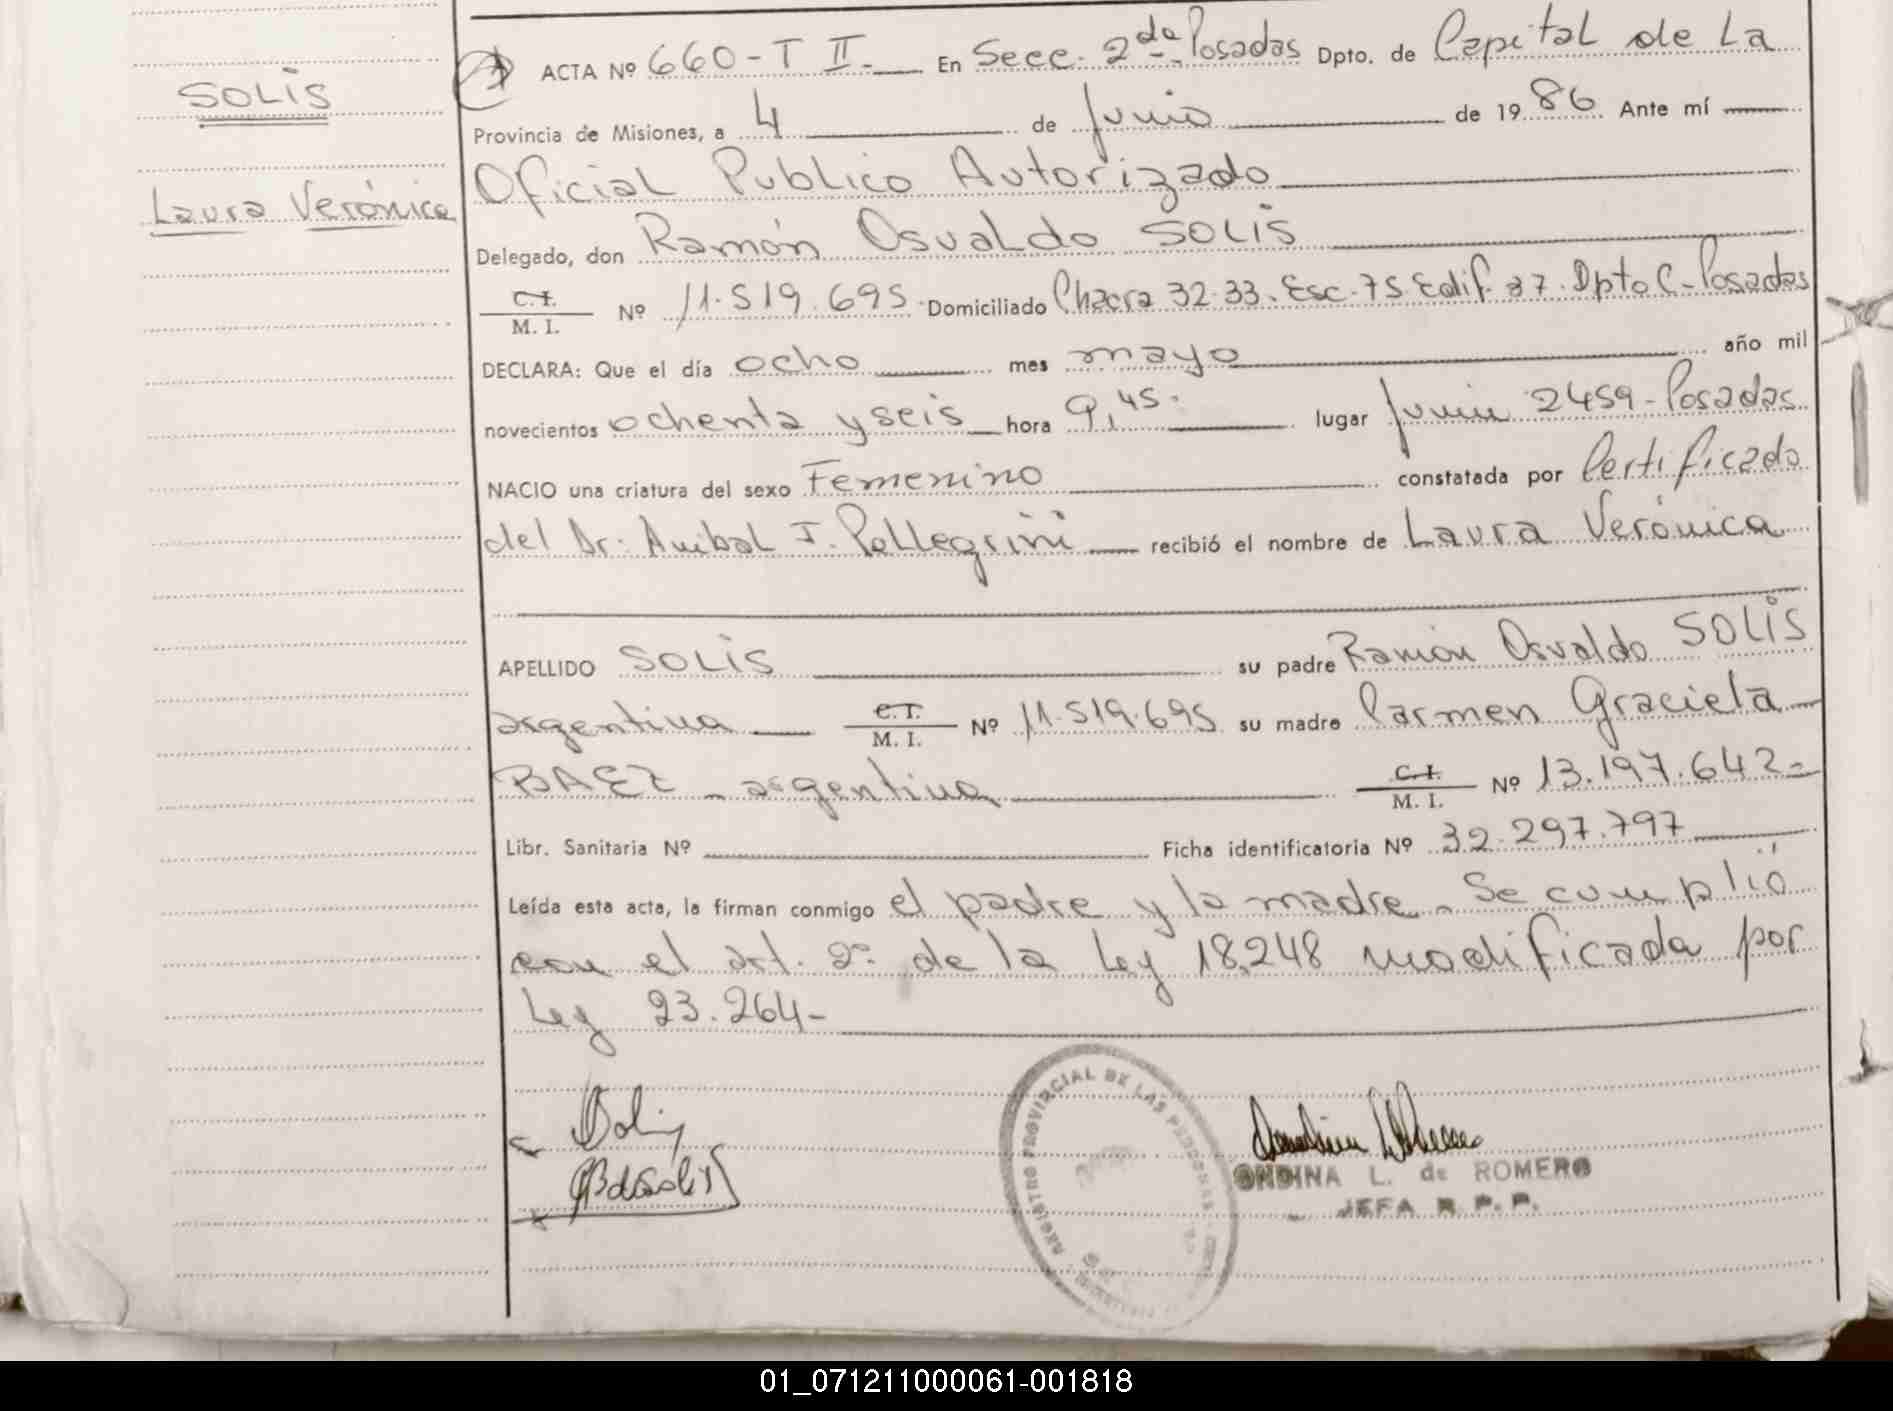 SOLIS
Laura Verónica
ACTA Nº 660-T II.- En Secc. 2da Posadas Dpto. de Capital de La
Provincia de Misiones, a 4 de Junio de 1986 Ante mí
Oficial Publico Autorizado
Delegado, don Ramón Osvaldo SOLIS
C.I. / M. I. Nº 11.519.695 Domiciliado Chacra 32-33. Esc. 75 Edif. 37. Dpto C-Posadas
DECLARA: Que el día ocho mes mayo año mil
novecientos ochenta y seis hora 9,45. lugar Junin 2459-Posadas.
NACIO una criatura del sexo Femenino constatada por Certificado
del Dr. Anibal J. Pellegrini recibió el nombre de Laura Verónica
APELLIDO SOLIS su padre Ramón Osvaldo SOLIS
argentina C.I. / M. I. Nº 11.519.695 su madre Carmen Graciela
BAEZ - argentina C.I. / M. I. Nº 13.197.642=
Libr. Sanitaria Nº Ficha identificatoria Nº 32.297.797
Leída esta acta, la firman conmigo el padre y la madre. Se cumplió
con el art. 2º de la Ley 18.248 modificada por
Ley 23.264-
REGISTRO PROVINCIAL DE LAS PERSONAS
ONDINA L. de ROMERO
JEFA R. P. P.
01_071211000061-001818